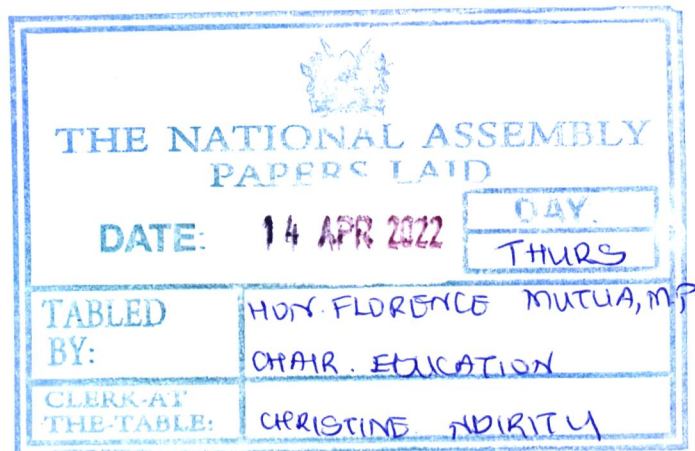 THE NATIONAL ASSEMBLY
PAPERS LAID
DATE: 14 APR 2022
DAY.
THURS
TABLED BY:
HON. FLORENCE MUTUA, MP
CHAIR. EDUCATION
CLERK-AT THE-TABLE:
CHRISTINE NDIRITU